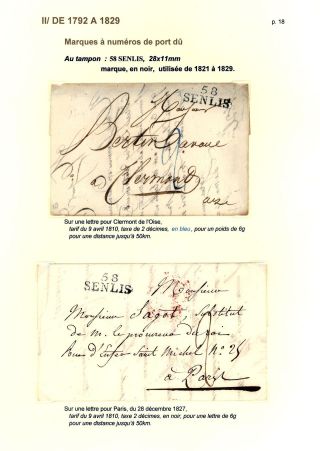 II/ DE 1792 A 1829
p. 18
Marques à numéros de port dû
Au tampon : 58 SENLIS, 28x11mm
marque, en noir, utilisée de 1821 à 1829.
58
SENLIS
Monsieur
Bertin avoué
à Clermont
oise
Sur une lettre pour Clermont de l'Oise,
tarif du 9 avril 1810, taxe de 2 décimes, en bleu, pour un poids de 6g
pour une distance jusqu'à 50km.
58
SENLIS
Monsieur
Monsieur Substitut
de M. le procureur du roi
Rue d'Enfer Saint Michel n° 25
à Paris
Sur une lettre pour Paris, du 28 décembre 1827,
tarif du 9 avril 1810, taxe 2 décimes, en noir, pour une lettre de 6g
pour une distance jusqu'à 50km.